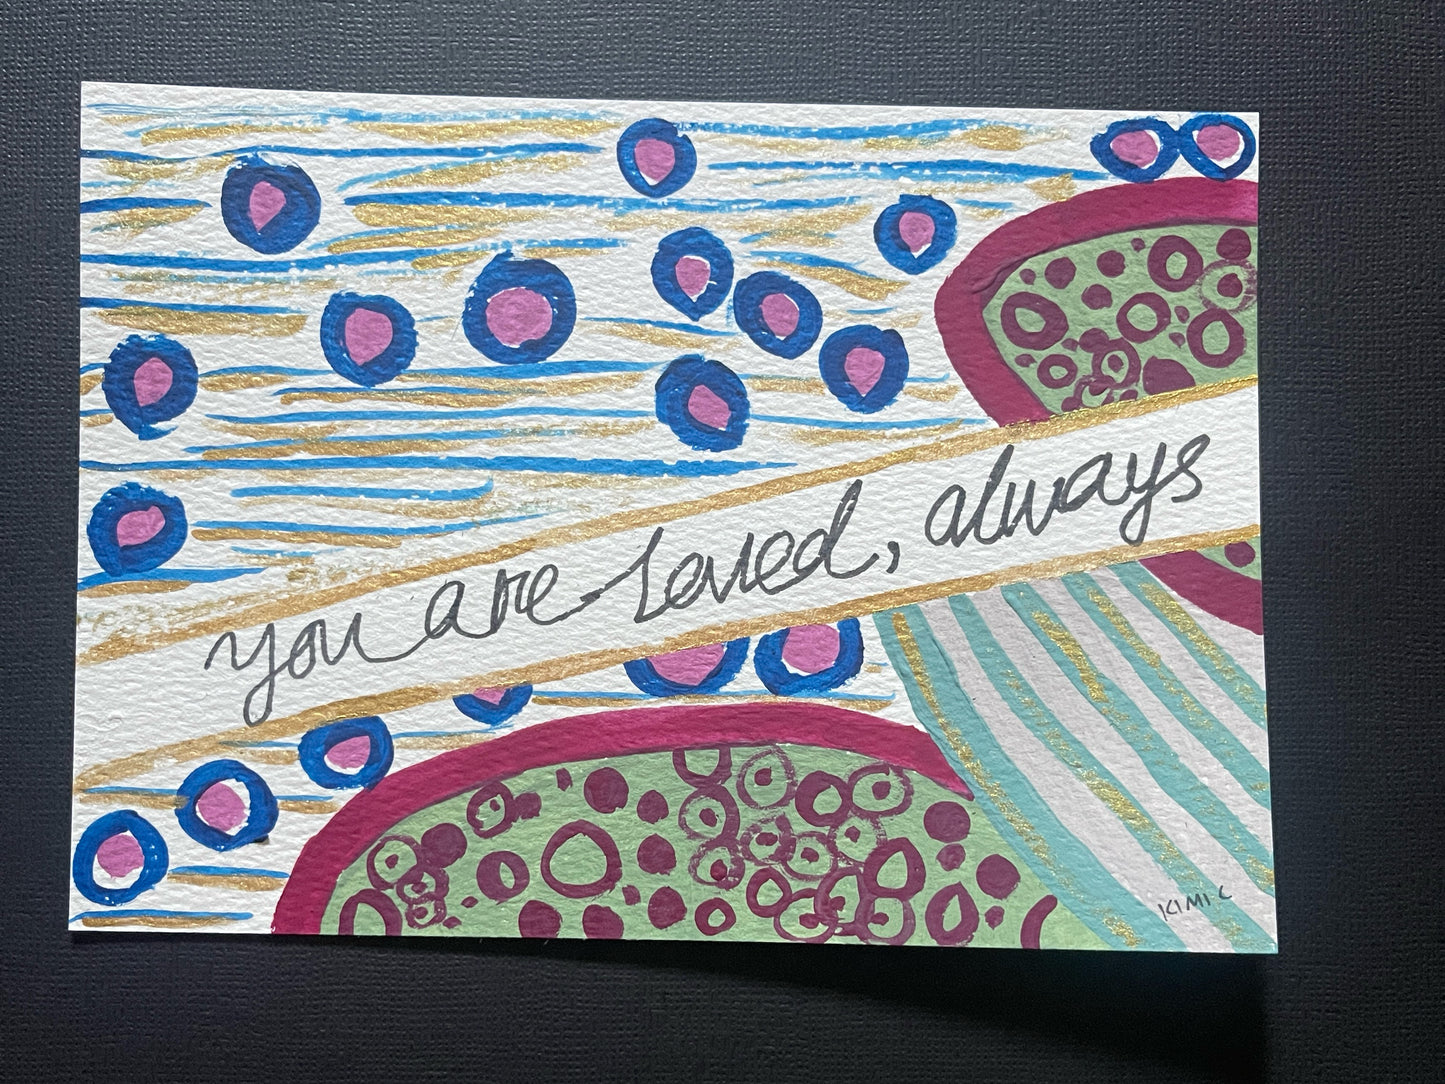 you are loved, always
KIMI C